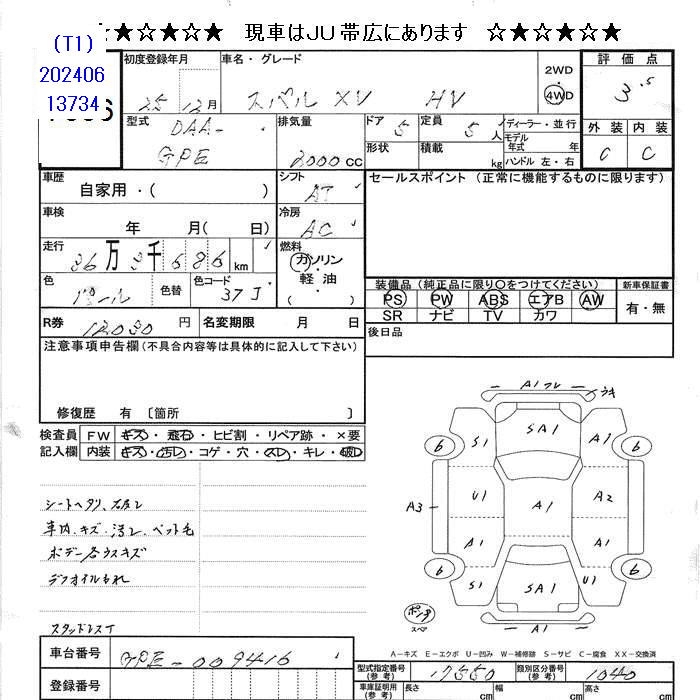 ★☆★☆★ 現車はJU帯広にあります ☆★☆★☆★
(T1)
202406
13734
初度登録年月
25年 12月
車名・グレード
スバル XV HV
2WD
4WD
評価点
3.5
型式
DAA-
GPE
排気量
2000 cc
ドア 5
定員 5 人
形状
積載 kg
ディーラー・並行
モデル年式 年
ハンドル 左・右
外装 内装
C C
車歴
自家用・( )
シフト
AT
セールスポイント (正常に機能するものに限ります)
車検
年 月( 日)
冷房
AC
走行
万 千 686 km
燃料
ガソリン
軽油
( )
色
パール
色替
色コード
37J
装備品(純正品に限り○をつけてください)
新車保証書
PS PW ABS エアB AW
有・無
SR ナビ TV カワ
R券 12030 円
名変期限 月 日
後日品
注意事項申告欄(不具合内容等は具体的に記入して下さい)
修復歴 有 〔箇所 〕
検査員記入欄
FW キズ・飛石・ヒビ割・リペア跡・×要
内装 キズ・汚レ・コゲ・穴・スレ・キレ・破レ
シートヘタリ、
車内、キズ・汚レ、ペット毛
ボデー各ウスキズ
デフオイルもれ
スタッドレスT
A1 フレ ウキ
S1 SA1 A1
6 6
A3 U1 A1 A2
A1 A1
6 6
S1 SA1 U1
A1
パンク
スペア
A-キズ E-エクボ U-凹み W-補修跡 S-サビ C-腐食 XX-交換済
車台番号 GPE-009416
登録番号
型式指定番号(参考) 17550
類別区分番号(参考) 1040
車庫証明用(参考) 長さ cm 幅 cm 高さ cm